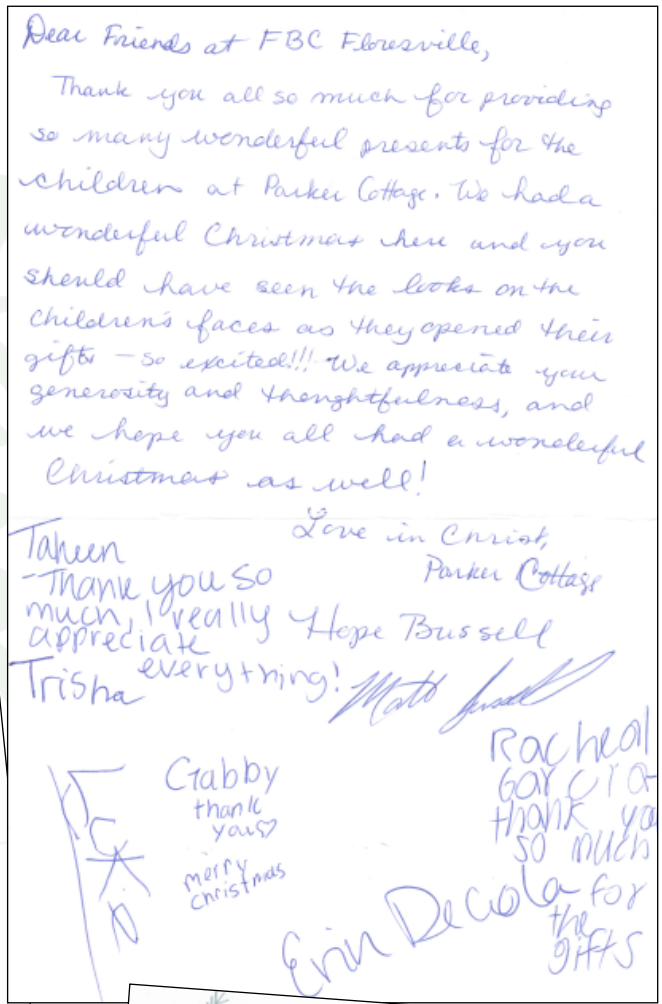 Dear Friends at FBC Floresville,
Thank you all so much for providing
so many wonderful presents for the
children at Parker Cottage. We had a
wonderful Christmas here and you
should have seen the looks on the
children's faces as they opened their
gifts – so excited!!! We appreciate your
generosity and thoughtfulness, and
we hope you all had a wonderful
Christmas as well!
Love in Christ,
Parker Cottage
Taheen
-Thank you so
much, I really
appreciate
everything!
Hope Bussell
Trisha
Matt
Gabby
thank
you♡
merry
christmas
Racheal
Garcia
thank you
so much
for
the
gifts
Erin DeCola